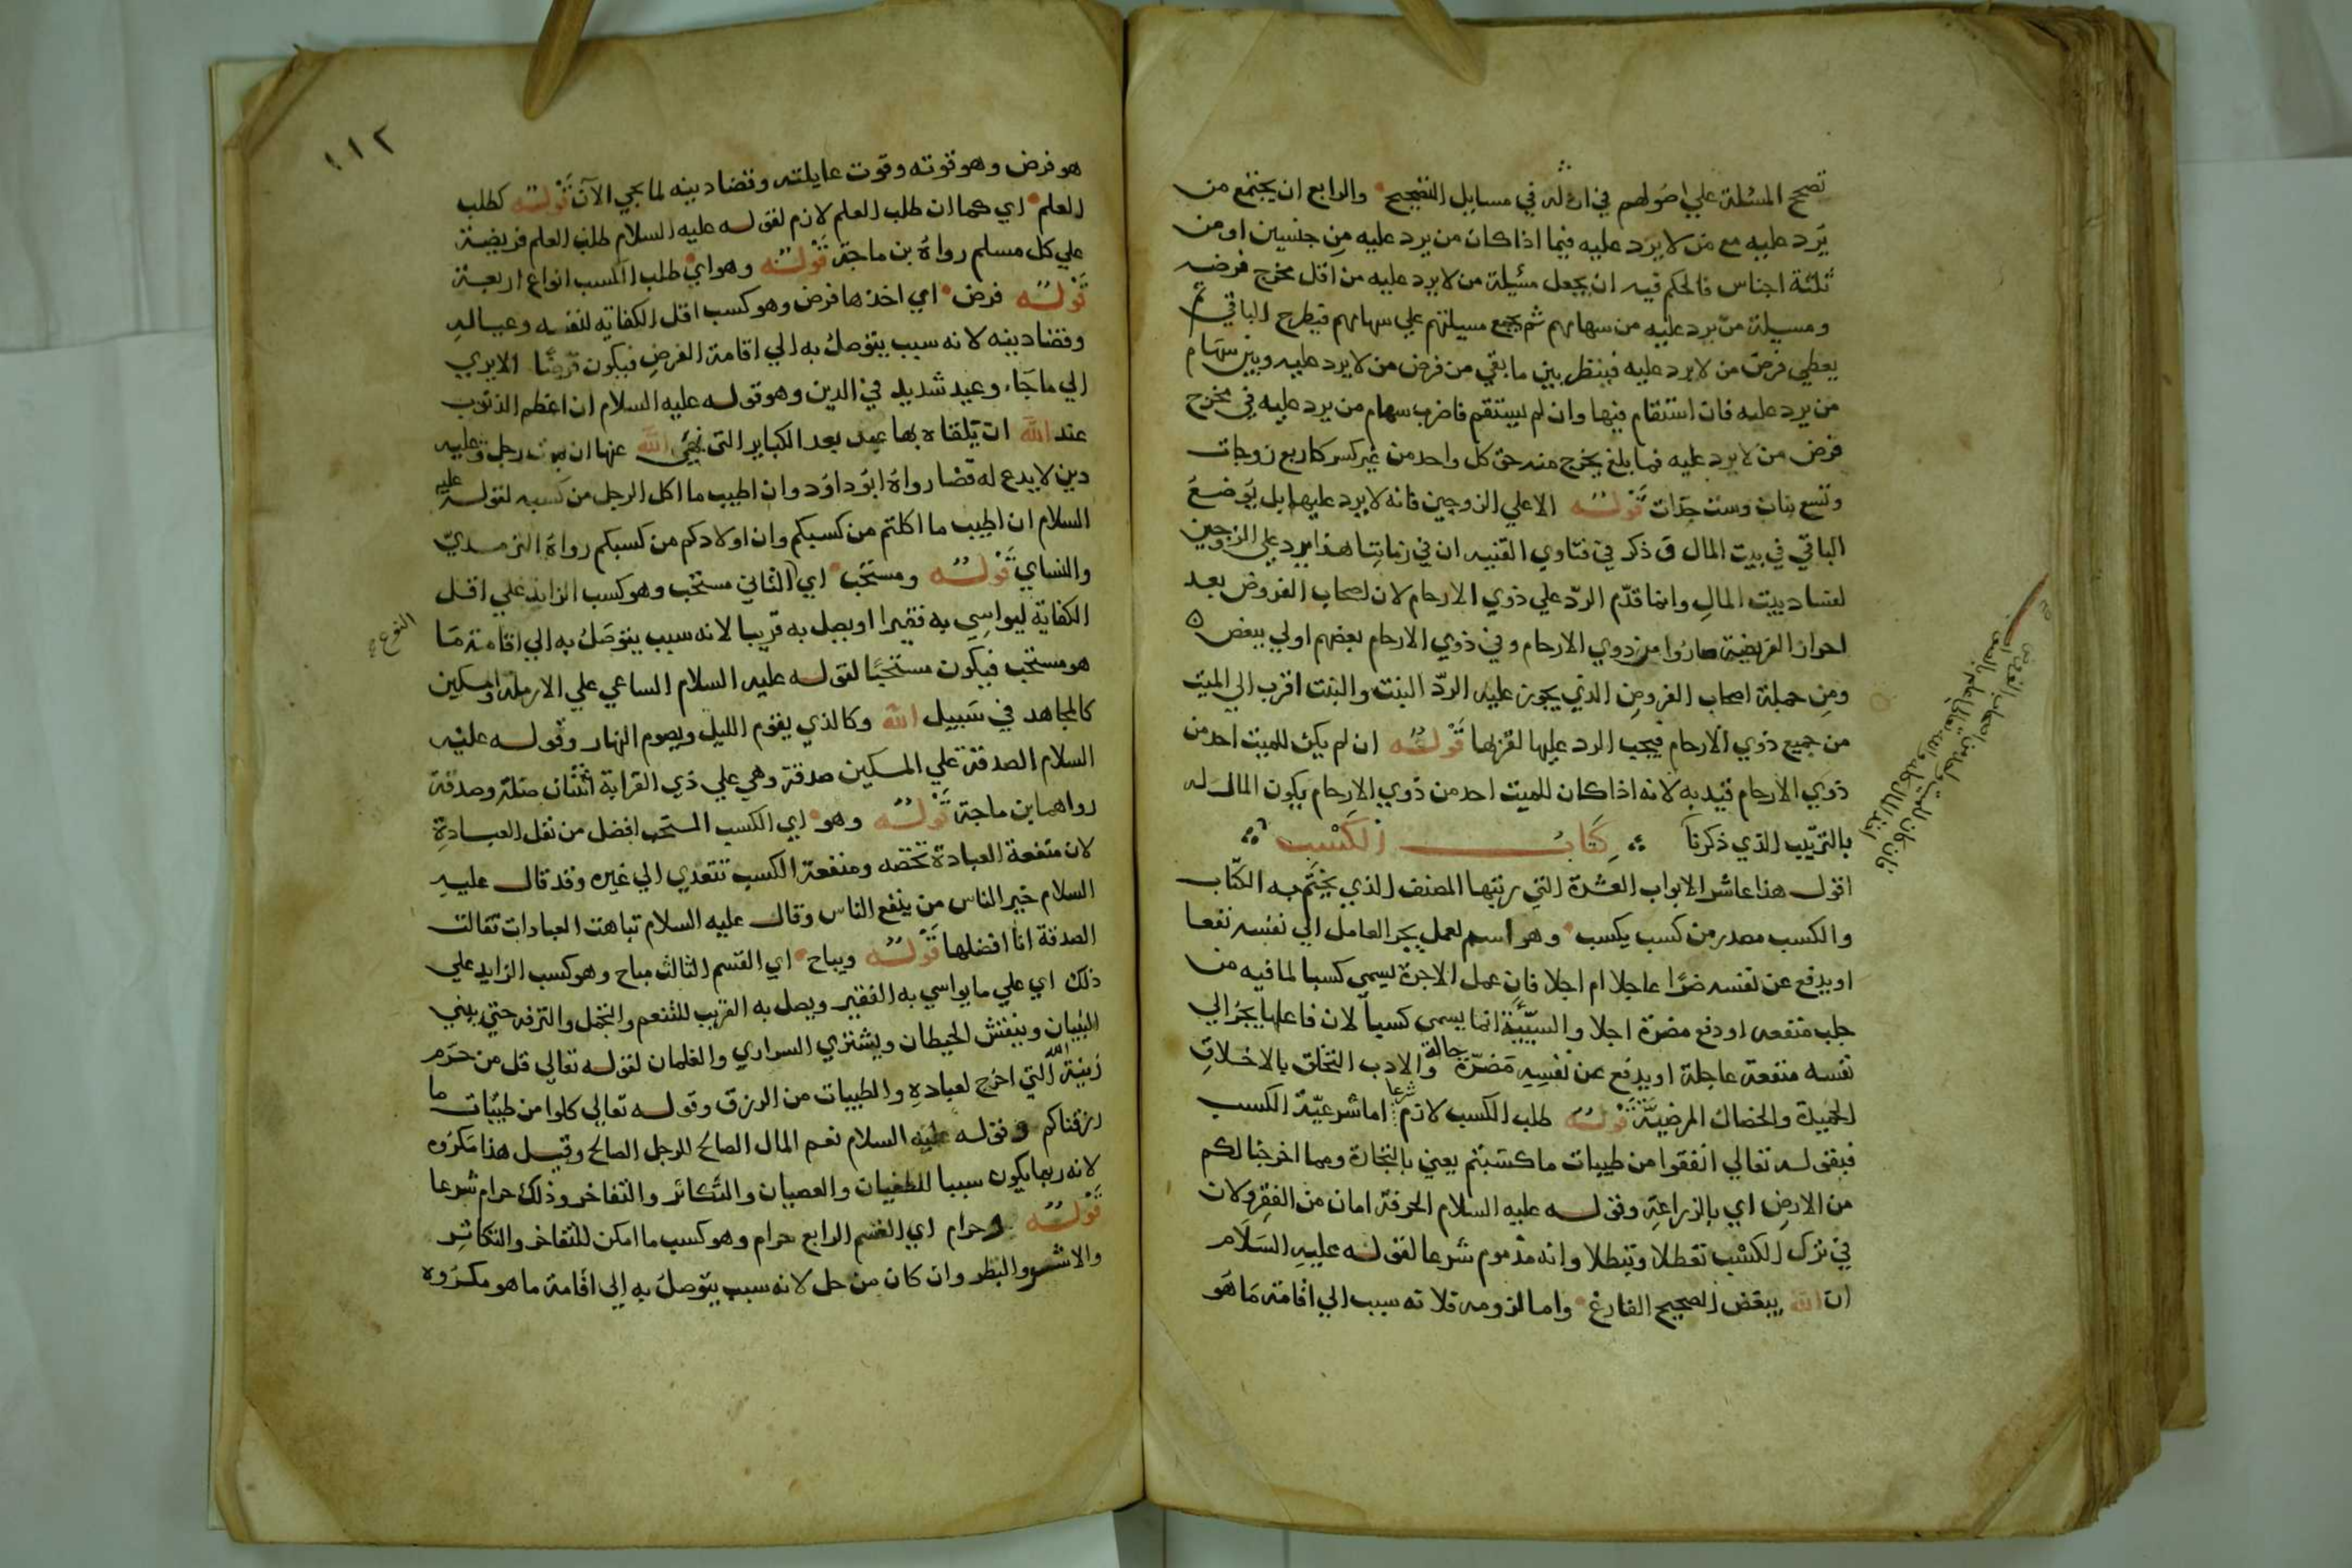 تصح المسئلة علي اصولهم في ارثه في مسايل التصحيح والرابع ان يجتمع من
يرد عليه مع من لا يرد عليه فيما اذا كان من يرد عليه من جنسين او من
ثلثة اجناس فالحكم فيه ان يجعل مسئلة من لا يرد عليه من اقل مخرج فرضه
ومسيلة من يرد عليه من سهامهم ثم يجمع مسيلتهم علي سهامهم فيطرح الباقي
يعطي فرض من لا يرد عليه فينظر بين ما بقي من فرض من لا يرد عليه وبين سهام
من يرد عليه فان استقام فيها وان لم يستقم فاضرب سهام من يرد عليه في مخرج
فرض من لا يرد عليه فما بلغ يخرج منه حق كل واحد من غير كسر كاربع زوجات
وتسع بنات وست جدات قوله الا علي الزوجين فانه لا يرد عليهما بل يوضع
الباقي في بيت المال وذكر في فتاوي القنيه ان في زماننا هذا يرد علي الزوجين
لفساد بيت المال وانما قدم الرد علي ذوي الارحام لان اصحاب الفروض بعد
احراز الفريضة صاروا من ذوي الارحام وفي ذوي الارحام بعضهم اولي ببعض
ومن جملة اصحاب الفروض الذي يجوز عليه الرد البنت والبنت اقرب الي الميت
من جميع ذوي الارحام فيجب الرد عليها لقربها قوله ان لم يكن للميت احد من
ذوي الارحام قيد به لانه اذا كان للميت احد من ذوي الارحام يكون المال له
بالترتيب الذي ذكرنا كتاب الكسب
اقول هذا عاشر الابواب العشرة التي رتبها المصنف الذي يختم به الكتاب
والكسب مصدر من كسب يكسب وهو اسم لعمل يجر العامل الي نفسه نفعا
او يدفع عن نفسه ضرا عاجلا ام اجلا فان عمل الاجرة يسمي كسبا لما فيه من
جلب منفعه او دفع مضرة اجلا والسيئة انما يسمي كسبا لان فاعلها يجر الي
نفسه منفعة عاجلة او يدفع عن نفسه مضرة حالة والادب التخلق بالاخلاق
الجميلة والخصال المرضية قوله طلب الكسب لازم شرعا اما شرعية الكسب
فبقوله تعالي انفقوا من طيبات ما كسبتم يعني بالتجارة ومما اخرجنا لكم
من الارض اي بالزراعة وقوله عليه السلام الحرفة امان من الفقر ولان
في ترك الكسب تعطلا وتبطلا وانه مذموم شرعا لقوله عليه السلام
ان الله يبغض الصحيح الفارغ واما لزومه فلانه سبب الي اقامة ما هو
١١٢
هو فرض وهو قوته وقوت عايلته وقضا دينه لما يجي الآن قوله كطلب
العلم اي كما ان طلب العلم لازم لقوله عليه السلام طلب العلم فريضة
علي كل مسلم رواه بن ماجة قوله وهو اي طلب الكسب انواع اربعة
قوله فرض اي اخذها فرض وهو كسب اقل الكفاية لنفسه وعياله
وقضا دينه لانه سبب يتوصل به الي اقامة الفرض فيكون فرضا الا يري
الي ما جاء وعيد شديد في الدين وهو قوله عليه السلام ان اعظم الذنوب
عند الله ان يلقاه بها عبد بعد الكباير التي نهي الله عنها ان يموت رجل وعليه
دين لا يدع له قضا رواه ابو داود وان اطيب ما اكل الرجل من كسبه لقوله عليه
السلام ان اطيب ما اكلتم من كسبكم وان اولادكم من كسبكم رواه الترمذي
والنساي قوله ومستحب اي الثاني مستحب وهو كسب الزايد علي اقل
النوع
الكفاية ليواسي به فقيرا او يصل به قريبا لانه سبب يتوصل به الي اقامة ما
هو مستحب فيكون مستحبا لقوله عليه السلام الساعي علي الارملة والمسكين
كالمجاهد في سبيل الله وكالذي يقوم الليل ويصوم النهار وقوله عليه
السلام الصدقة علي المسكين صدقة وهي علي ذي القرابة اثنتان صلة وصدقة
رواهما بن ماجة قوله وهو اي الكسب المستحب افضل من نفل العبادة
لان منفعة العبادة تختصه ومنفعة الكسب تتعدي الي غيره وقد قال عليه
السلام خير الناس من ينفع الناس وقال عليه السلام تباهت العبادات فقالت
الصدقة انا افضلها قوله ويباح اي القسم الثالث مباح وهو كسب الزايد علي
ذلك اي علي ما يواسي به الفقير ويصل به القريب للتنعم والتجمل والترفه حتي يبني
البنيان وينقش الحيطان ويشتري السراري والغلمان لقوله تعالي قل من حرم
زينة الله التي اخرج لعباده والطيبات من الرزق وقوله تعالي كلوا من طيبات ما
رزقناكم وقوله عليه السلام نعم المال الصالح للرجل الصالح وقيل هذا مكروه
لانه ربما يكون سببا للطغيان والعصيان والتكاثر والتفاخر وذلك حرام شرعا
قوله وحرام اي القسم الرابع حرام وهو كسب ما امكن للتفاخر والتكاثر
والاشر والبطر وان كان من حل لانه سبب يتوصل به الي اقامة ما هو مكروه